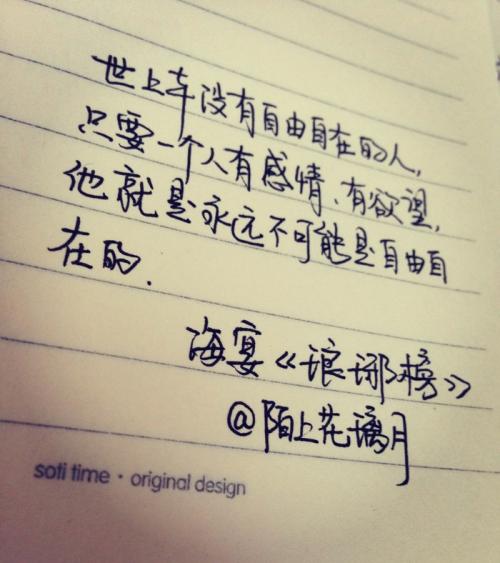 世上本没有自由自在的人,
只要一个人有感情、有欲望,
他就是永远不可能是自由自
在的.
海宴《琅琊榜》
@陌上花璃月
soti time · original design